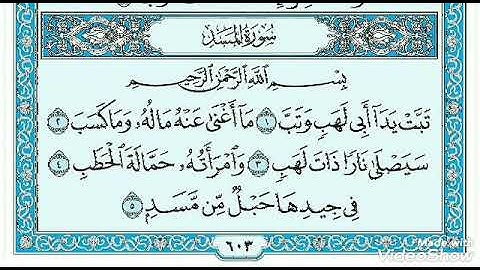 سُورَةُ المَسَدِ
بِسْمِ اللَّهِ الرَّحْمَٰنِ الرَّحِيمِ
تَبَّتْ يَدَا أَبِي لَهَبٍ وَتَبَّ ١ مَا أَغْنَىٰ عَنْهُ مَالُهُ وَمَا كَسَبَ ٢
سَيَصْلَىٰ نَارًا ذَاتَ لَهَبٍ ٣ وَامْرَأَتُهُ حَمَّالَةَ الْحَطَبِ ٤
فِي جِيدِهَا حَبْلٌ مِّن مَّسَدٍ ٥
٦٠٣
Made with
VideoShow